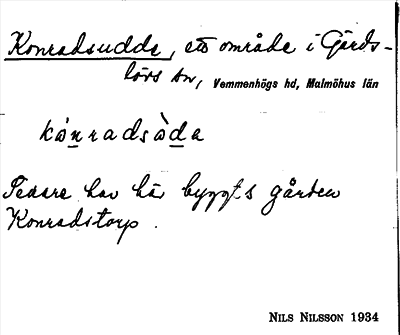 Konradsudda, ett område i Gärds-
lövs sn, Vemmenhögs hd, Malmöhus län
kónradsàda
Senare har här byggts gården
Konradstorp.
NILS NILSSON 1934